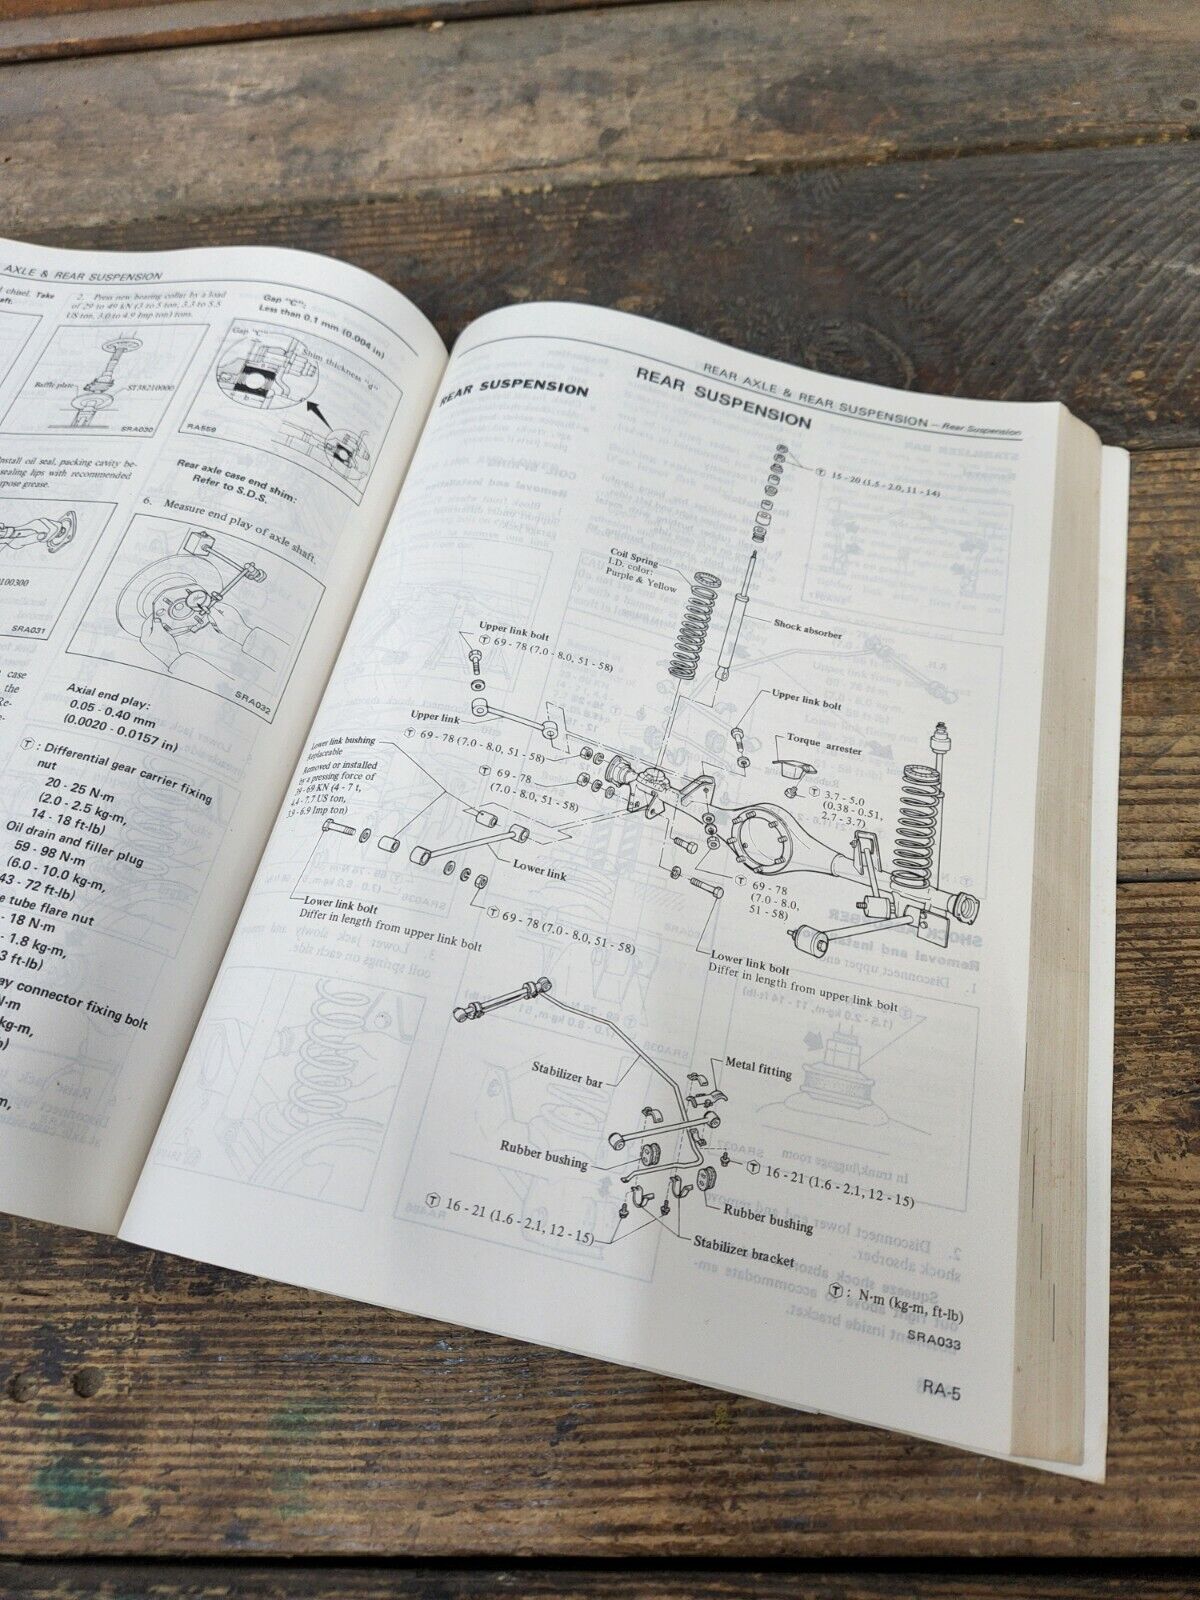 AXLE & REAR SUSPENSION
chisel. Take
2. Press new bearing collar by a load
of 29 to 49 kN (3 to 5 ton, 3.3 to 5.5
US ton, 3.0 to 4.9 Imp ton) tons.
Baffle plate
ST38210000
SRA030
install oil seal, packing cavity be-
sealing lips with recommended
grease.
00300
SRA031
case
the
Gap "C":
Less than 0.1 mm (0.004 in)
Shim thickness "d"
RA559
Rear axle case end shim:
Refer to S.D.S.
6. Measure end play of axle shaft.
SRA032
Axial end play:
0.05 - 0.40 mm
(0.0020 - 0.0157 in)
Ⓣ : Differential gear carrier fixing
nut
20 - 25 N·m
(2.0 - 2.5 kg-m,
14 - 18 ft-lb)
Oil drain and filler plug
59 - 98 N·m
(6.0 - 10.0 kg-m,
43 - 72 ft-lb)
tube flare nut
- 18 N·m
- 1.8 kg-m,
3 ft-lb)
connector fixing bolt
N·m
kg-m,
REAR AXLE & REAR SUSPENSION — Rear Suspension
REAR SUSPENSION
REAR SUSPENSION
Ⓣ 15 - 20 (1.5 - 2.0, 11 - 14)
Coil Spring
I.D. color:
Purple & Yellow
Shock absorber
Upper link bolt
Ⓣ 69 - 78 (7.0 - 8.0, 51 - 58)
Upper link bolt
Upper link
Ⓣ 69 - 78 (7.0 - 8.0, 51 - 58)
Torque arrester
Lower link bushing
Replaceable
Removed or installed
by a pressing force of
39 - 69 KN (4 - 7 t,
4.4 - 7.7 US ton,
3.9 - 6.9 Imp ton)
Ⓣ 69 - 78
(7.0 - 8.0, 51 - 58)
Ⓣ 3.7 - 5.0
(0.38 - 0.51,
2.7 - 3.7)
Lower link
Ⓣ 69 - 78
(7.0 - 8.0,
51 - 58)
Lower link bolt
Differ in length from upper link bolt
Ⓣ 69 - 78 (7.0 - 8.0, 51 - 58)
Lower link bolt
Differ in length from upper link bolt
Stabilizer bar
Metal fitting
Rubber bushing
Ⓣ 16 - 21 (1.6 - 2.1, 12 - 15)
Ⓣ 16 - 21 (1.6 - 2.1, 12 - 15)
Rubber bushing
Stabilizer bracket
Ⓣ : N·m (kg-m, ft-lb)
SRA033
RA-5